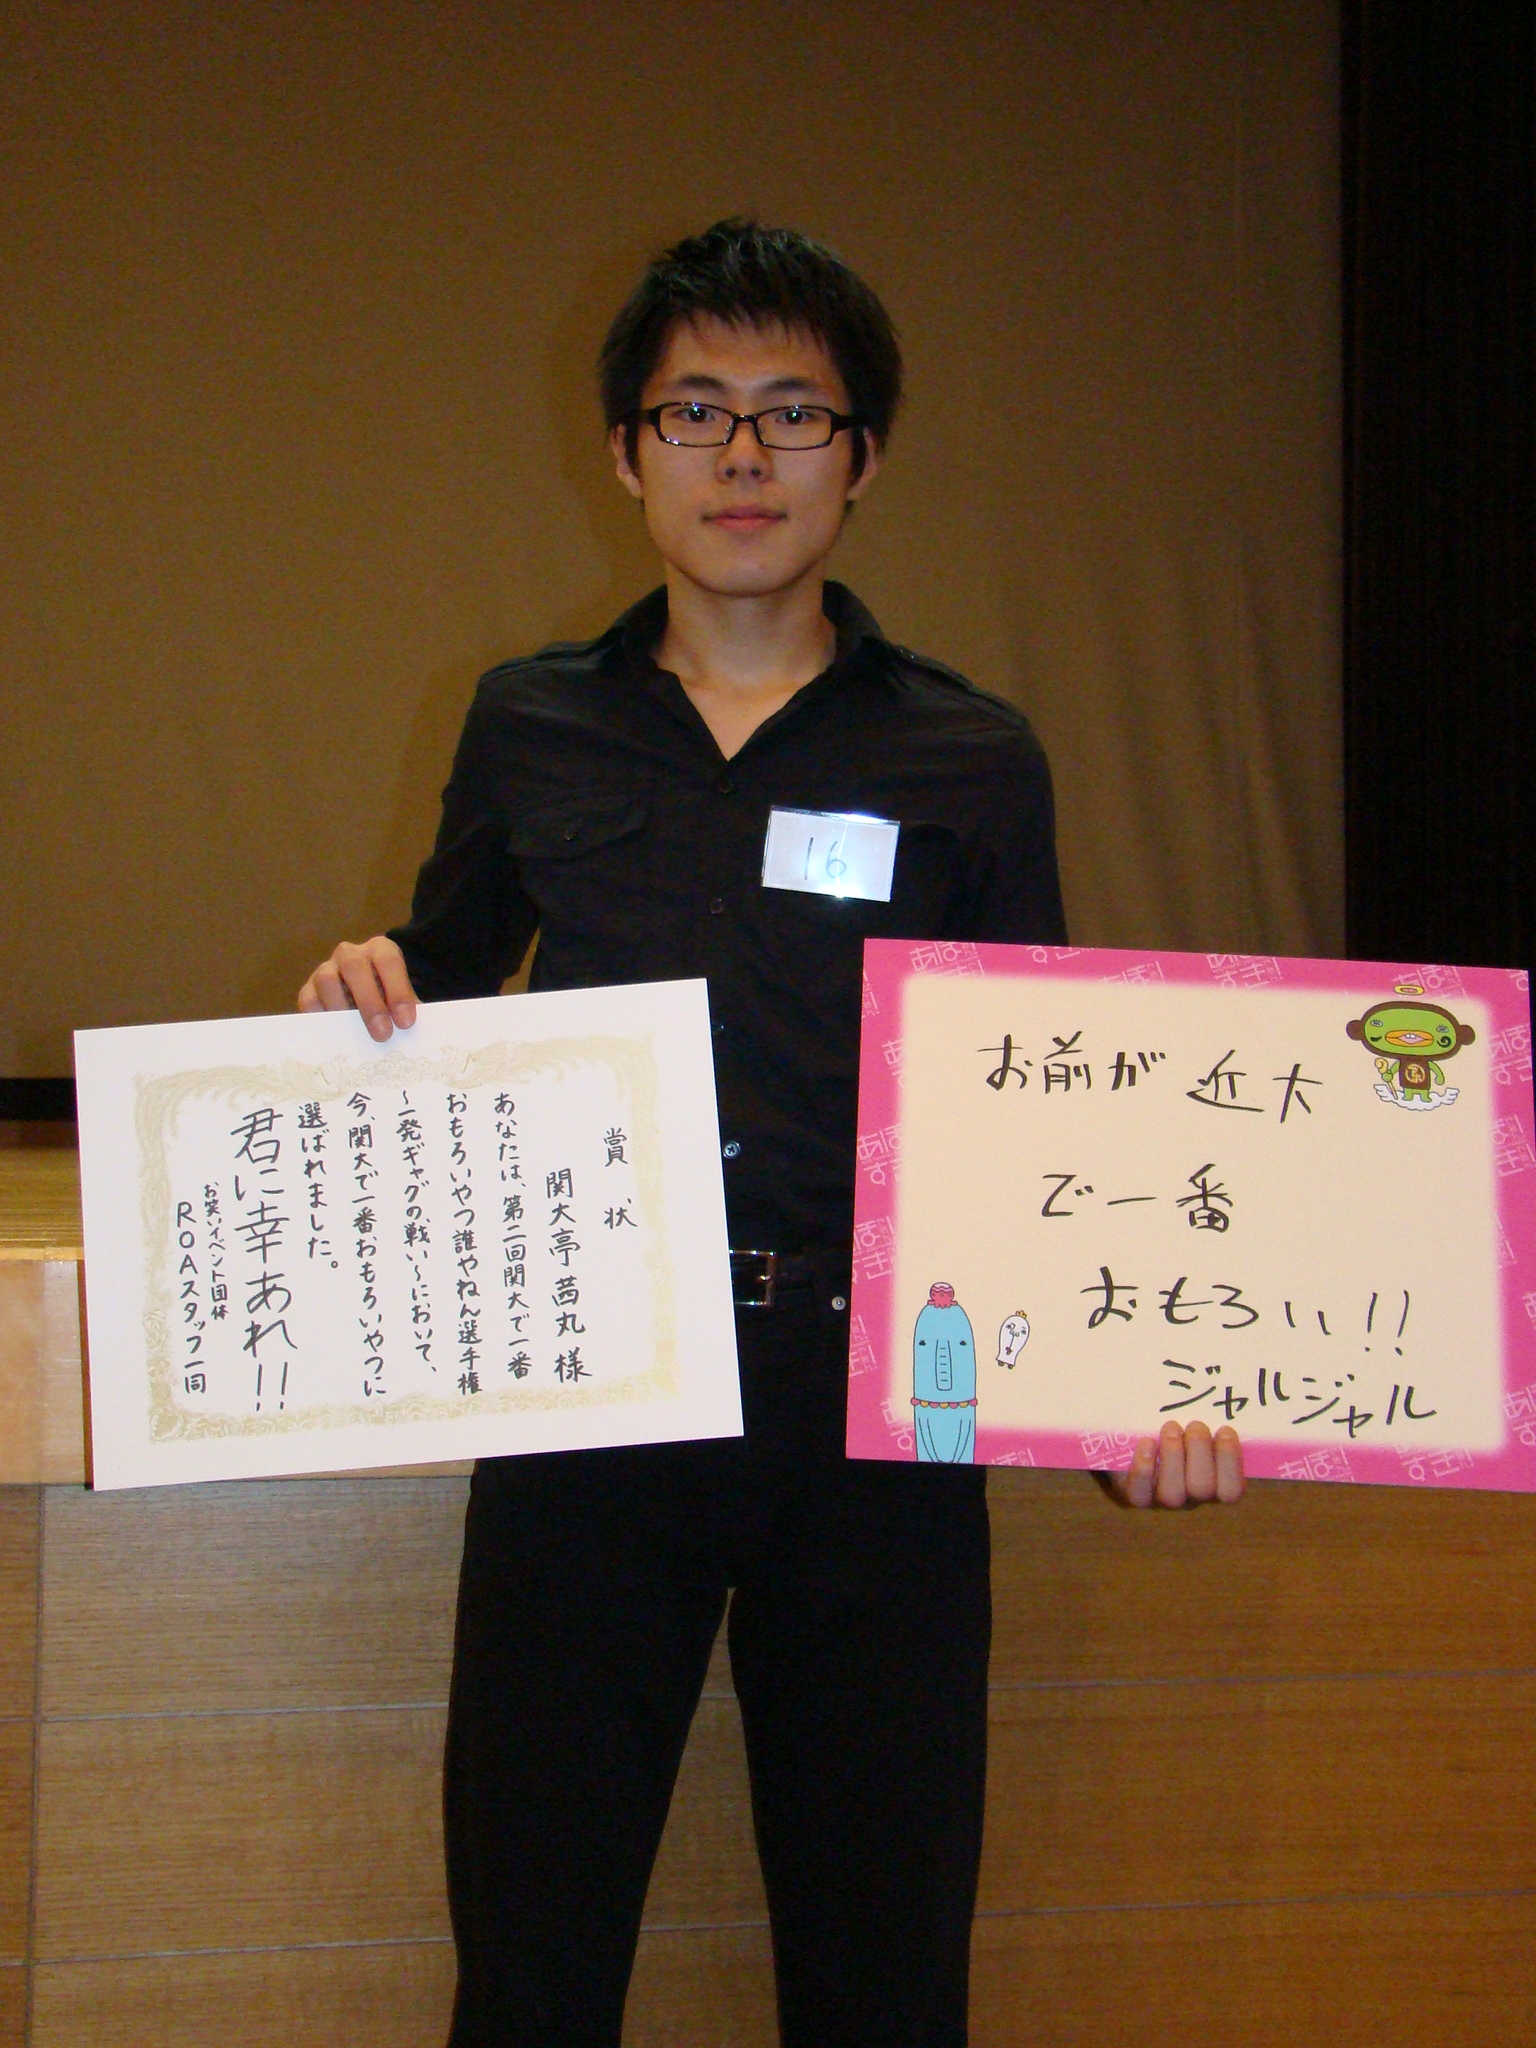 16
賞状
関大亭茜丸様
あなたは、第二回関大で一番
おもろいやつ誰やねん選手権
～一発ギャグの戦い～において、
今、関大で一番おもろいやつに
選ばれました。
君に幸あれ!!
お笑いイベント団体
ROAスタッフ一同
お前が近大
で一番
おもろい!!
ジャルジャル